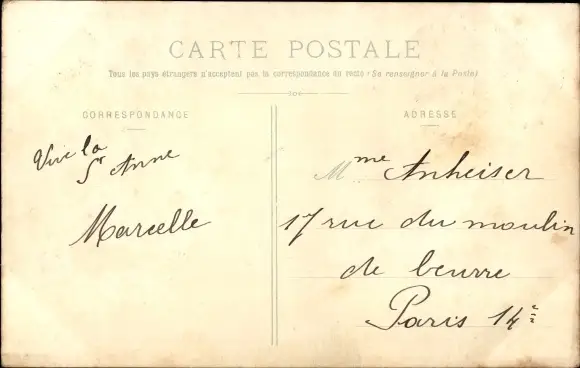 CARTE POSTALE
Tous les pays étrangers n'acceptent pas la correspondance du recto (Se renseigner à la Poste)
CORRESPONDANCE
ADRESSE
Vive la
St Anne
Marcelle
Mme Anheiser
17 rue du moulin
de beurre
Paris 14e